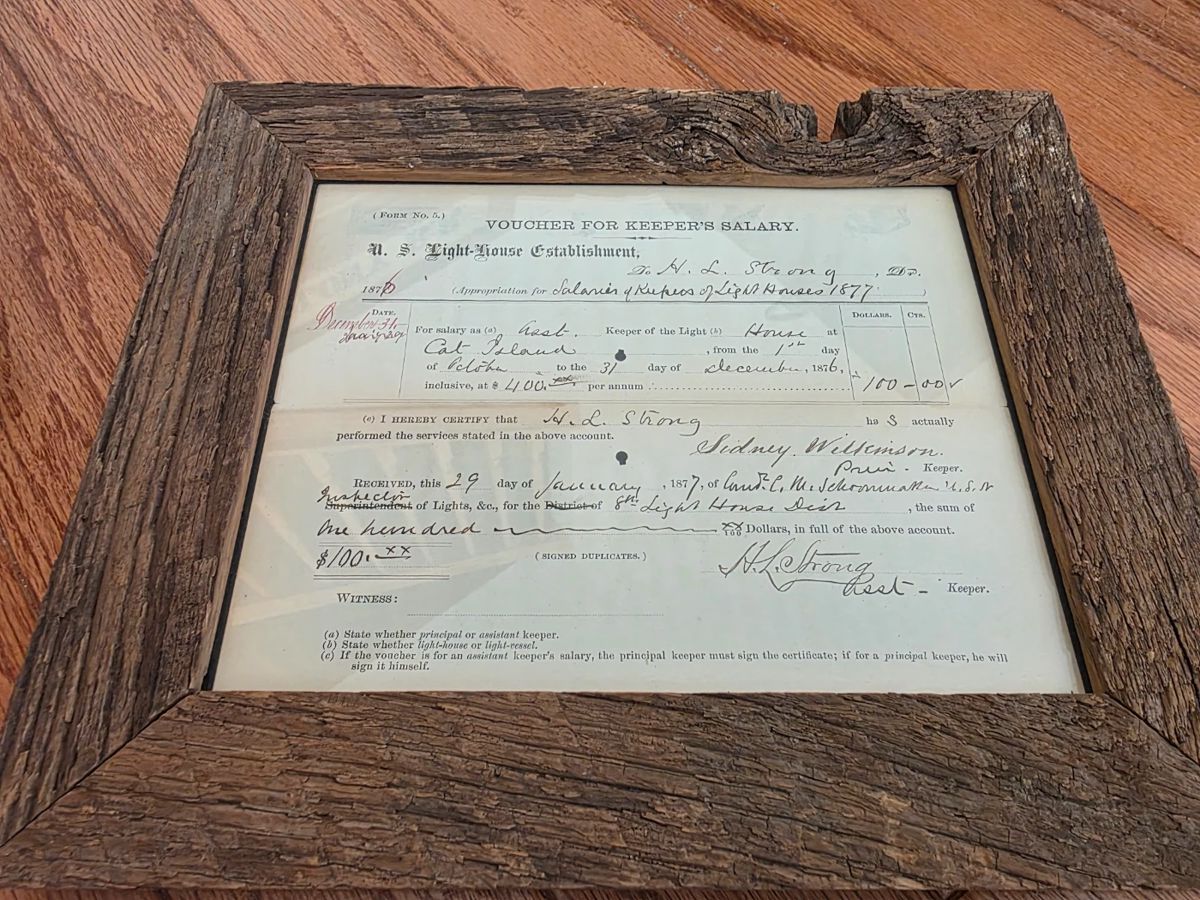 (Form No. 5.)
VOUCHER FOR KEEPER'S SALARY.
U. S. Light-House Establishment,
To H. L. Strong, Dr.
1876 (Appropriation for Salaries of Keepers of Light Houses 1877)
DATE. DOLLARS. CTS.
December 31
For salary as (a) Asst. Keeper of the Light (b) House at
Cat Island, from the 1st day
of October to the 31 day of December, 1876,
inclusive, at $ 400.xx per annum 100-00
(c) I HEREBY CERTIFY that H. L. Strong has actually
performed the services stated in the above account.
Sidney Wilkinson.
Prin. Keeper.
RECEIVED, this 29 day of January, 1877, of Comdr. C. M. Schoonmaker U.S.N
Inspector
Superintendent of Lights, &c., for the District of 8th Light House Dist, the sum of
One hundred xx/100 Dollars, in full of the above account.
$100.xx (SIGNED DUPLICATES.) H. L. Strong
Asst - Keeper.
WITNESS:
(a) State whether principal or assistant keeper.
(b) State whether light-house or light-vessel.
(c) If the voucher is for an assistant keeper's salary, the principal keeper must sign the certificate; if for a principal keeper, he will
sign it himself.